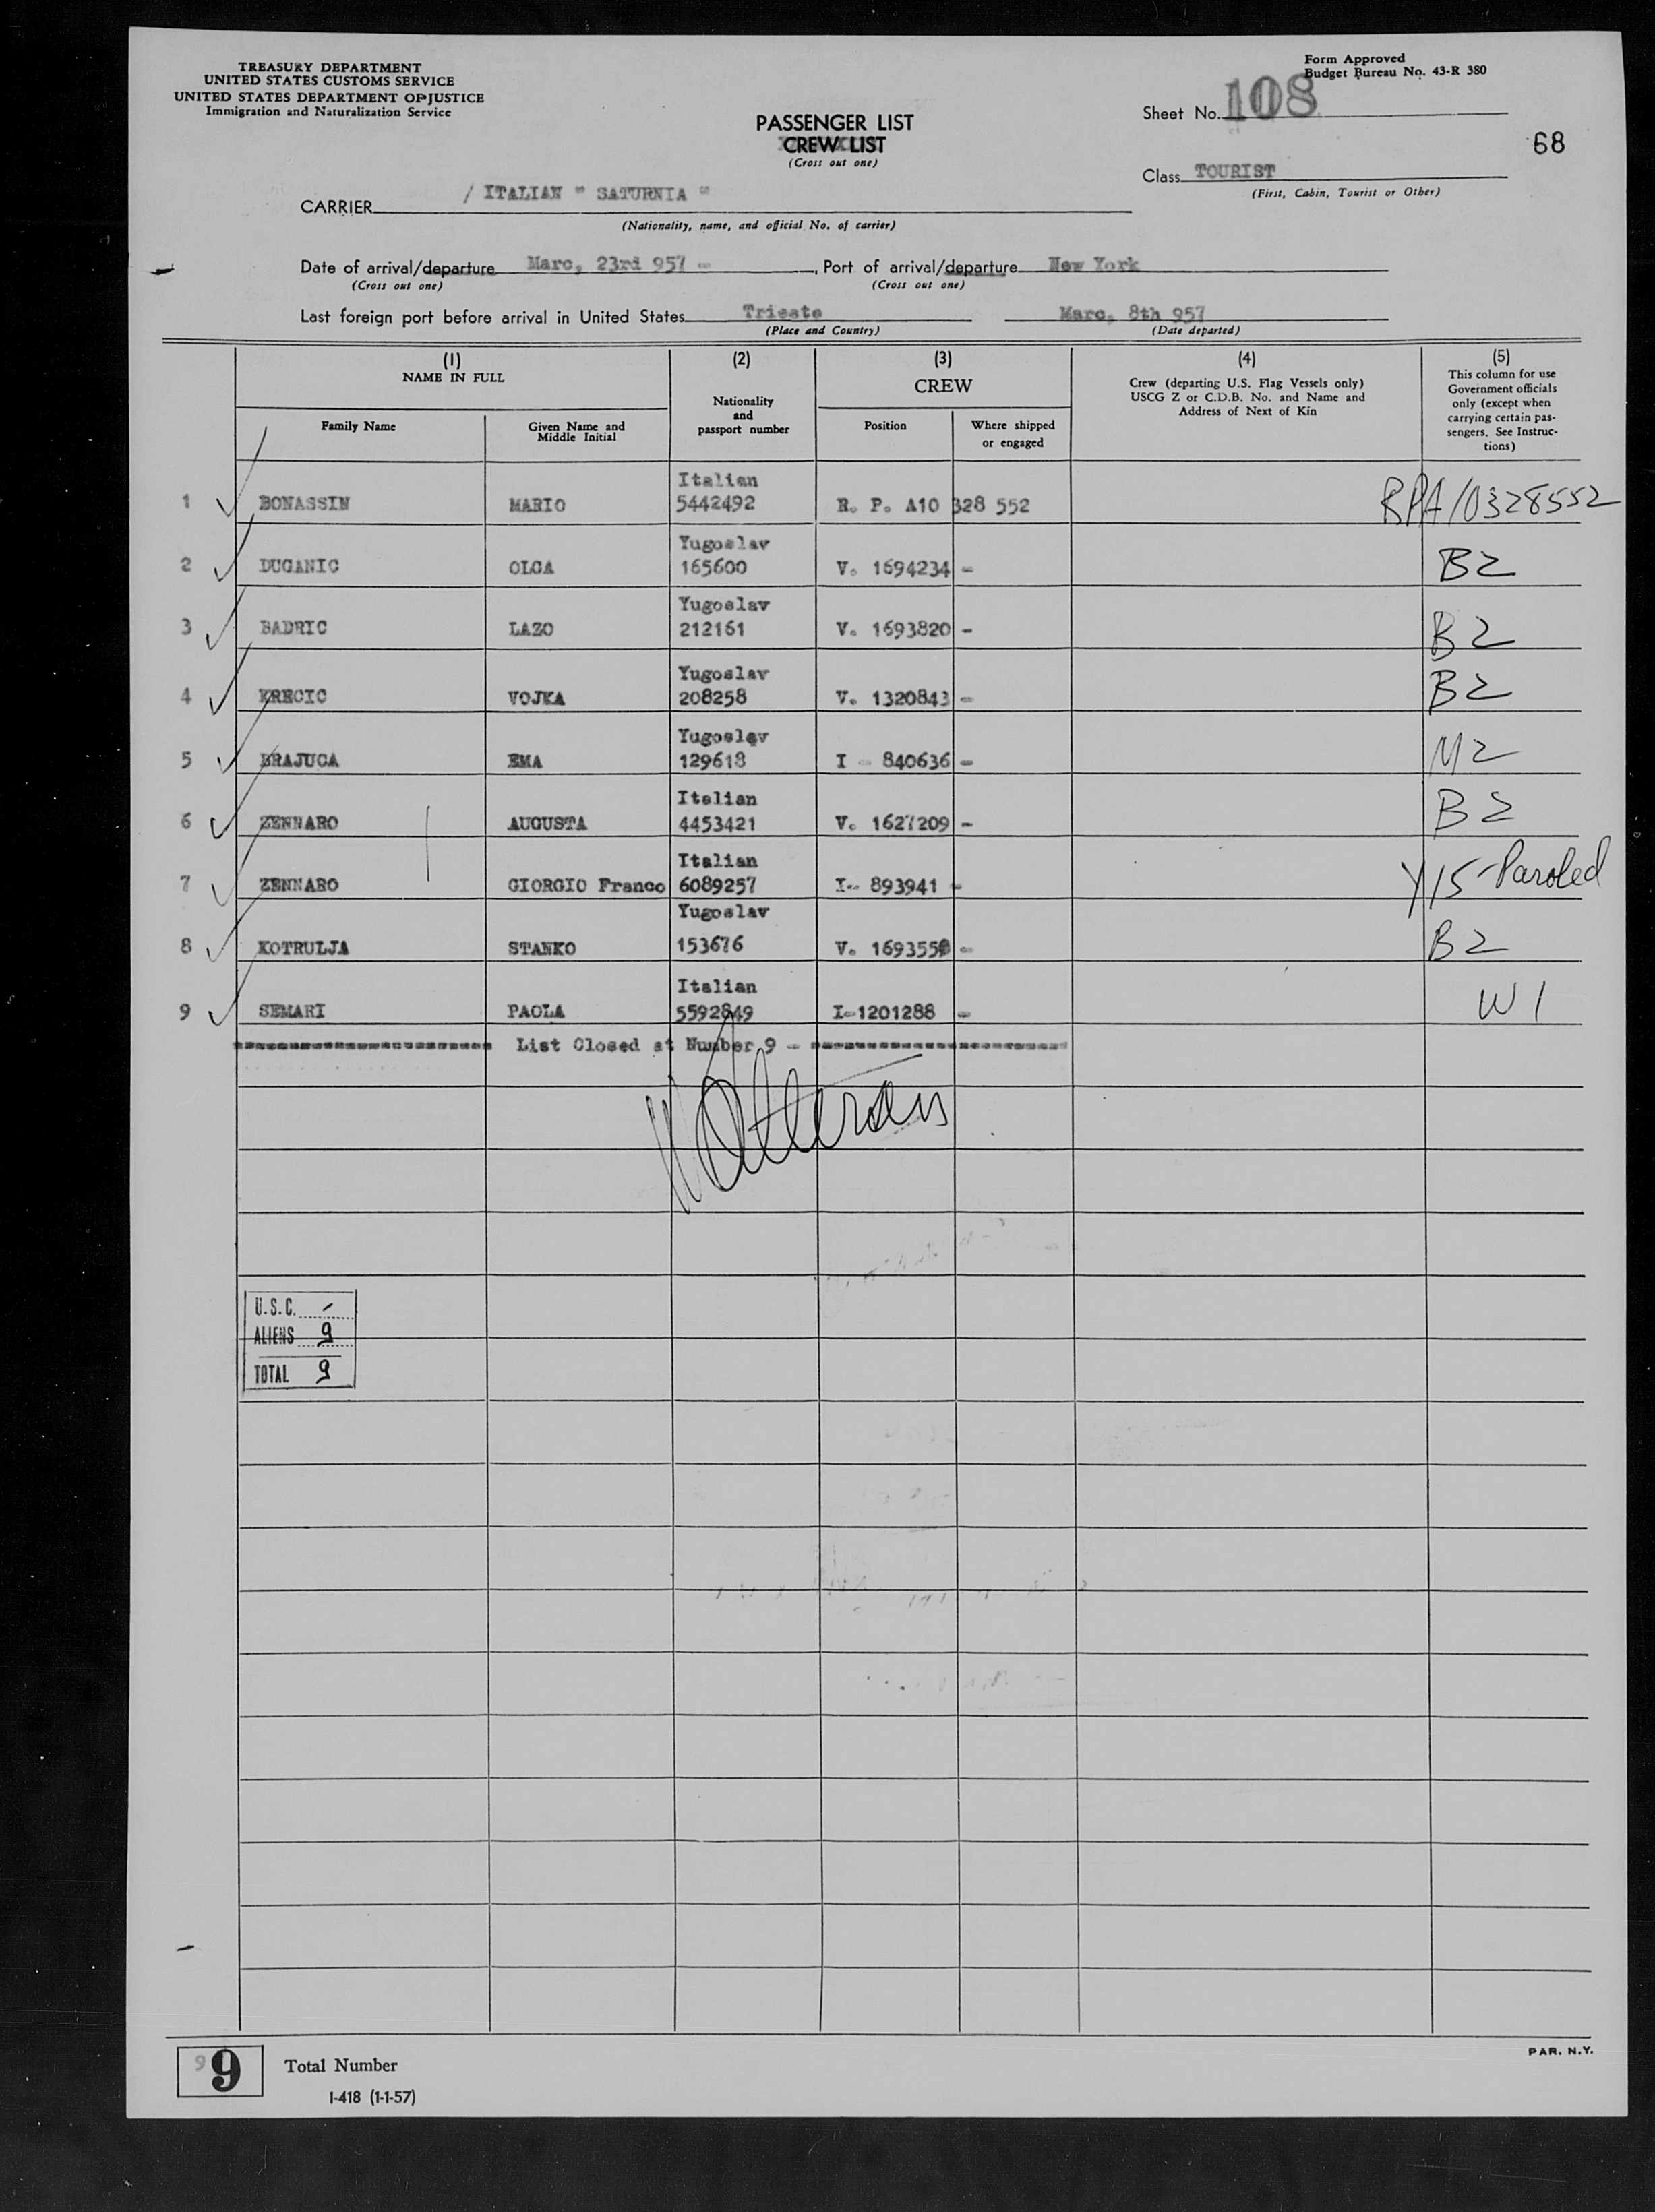 TREASURY DEPARTMENT
UNITED STATES CUSTOMS SERVICE
UNITED STATES DEPARTMENT OF JUSTICE
Immigration and Naturalization Service
Form Approved
Budget Bureau No. 43-R 380
PASSENGER LIST
CREW LIST
(Cross out one)
Sheet No. 108
68
Class TOURIST
(First, Cabin, Tourist or Other)
CARRIER / ITALIAN " SATURNIA "
(Nationality, name, and official No. of carrier)
Date of arrival/departure Marc, 23rd 957 -, Port of arrival/departure New York
(Cross out one) (Cross out one)
Last foreign port before arrival in United States Trieste Marc, 8th 957
(Place and Country) (Date departed)
(1) NAME IN FULL
Family Name
Given Name and Middle Initial
(2)
Nationality and passport number
(3)
CREW
Position
Where shipped or engaged
(4)
Crew (departing U.S. Flag Vessels only)
USCG Z or C.D.B. No. and Name and
Address of Next of Kin
(5)
This column for use
Government officials
only (except when
carrying certain pas-
sengers. See Instruc-
tions)
Italian
1 BONASSIN MARIO 5442492 R. P. A10 328 552 RPA10328552
Yugoslav
2 DUGANIC OLGA 165600 V. 1694234 - B2
Yugoslav
3 BADRIC LAZO 212161 V. 1693820 - B2
Yugoslav
4 KRECIC VOJKA 208258 V. 1320843 - B2
Yugoslav
5 BRAJUCA EMA 129618 I - 840636 - M2
Italian
6 ZENNARO AUGUSTA 4453421 V. 1627209 - B2
Italian
7 ZENNARO GIORGIO Franco 6089257 I- 893941 - Y15-Paroled
Yugoslav
8 KOTRULJA STANKO 153676 V. 1693550 - B2
Italian
9 SEMARI PAOLA 5592849 I-1201288 - W1
List Closed at Number 9 -
U.S.C. -
ALIENS 9
TOTAL 9
9 Total Number
I-418 (1-1-57)
PAR. N.Y.